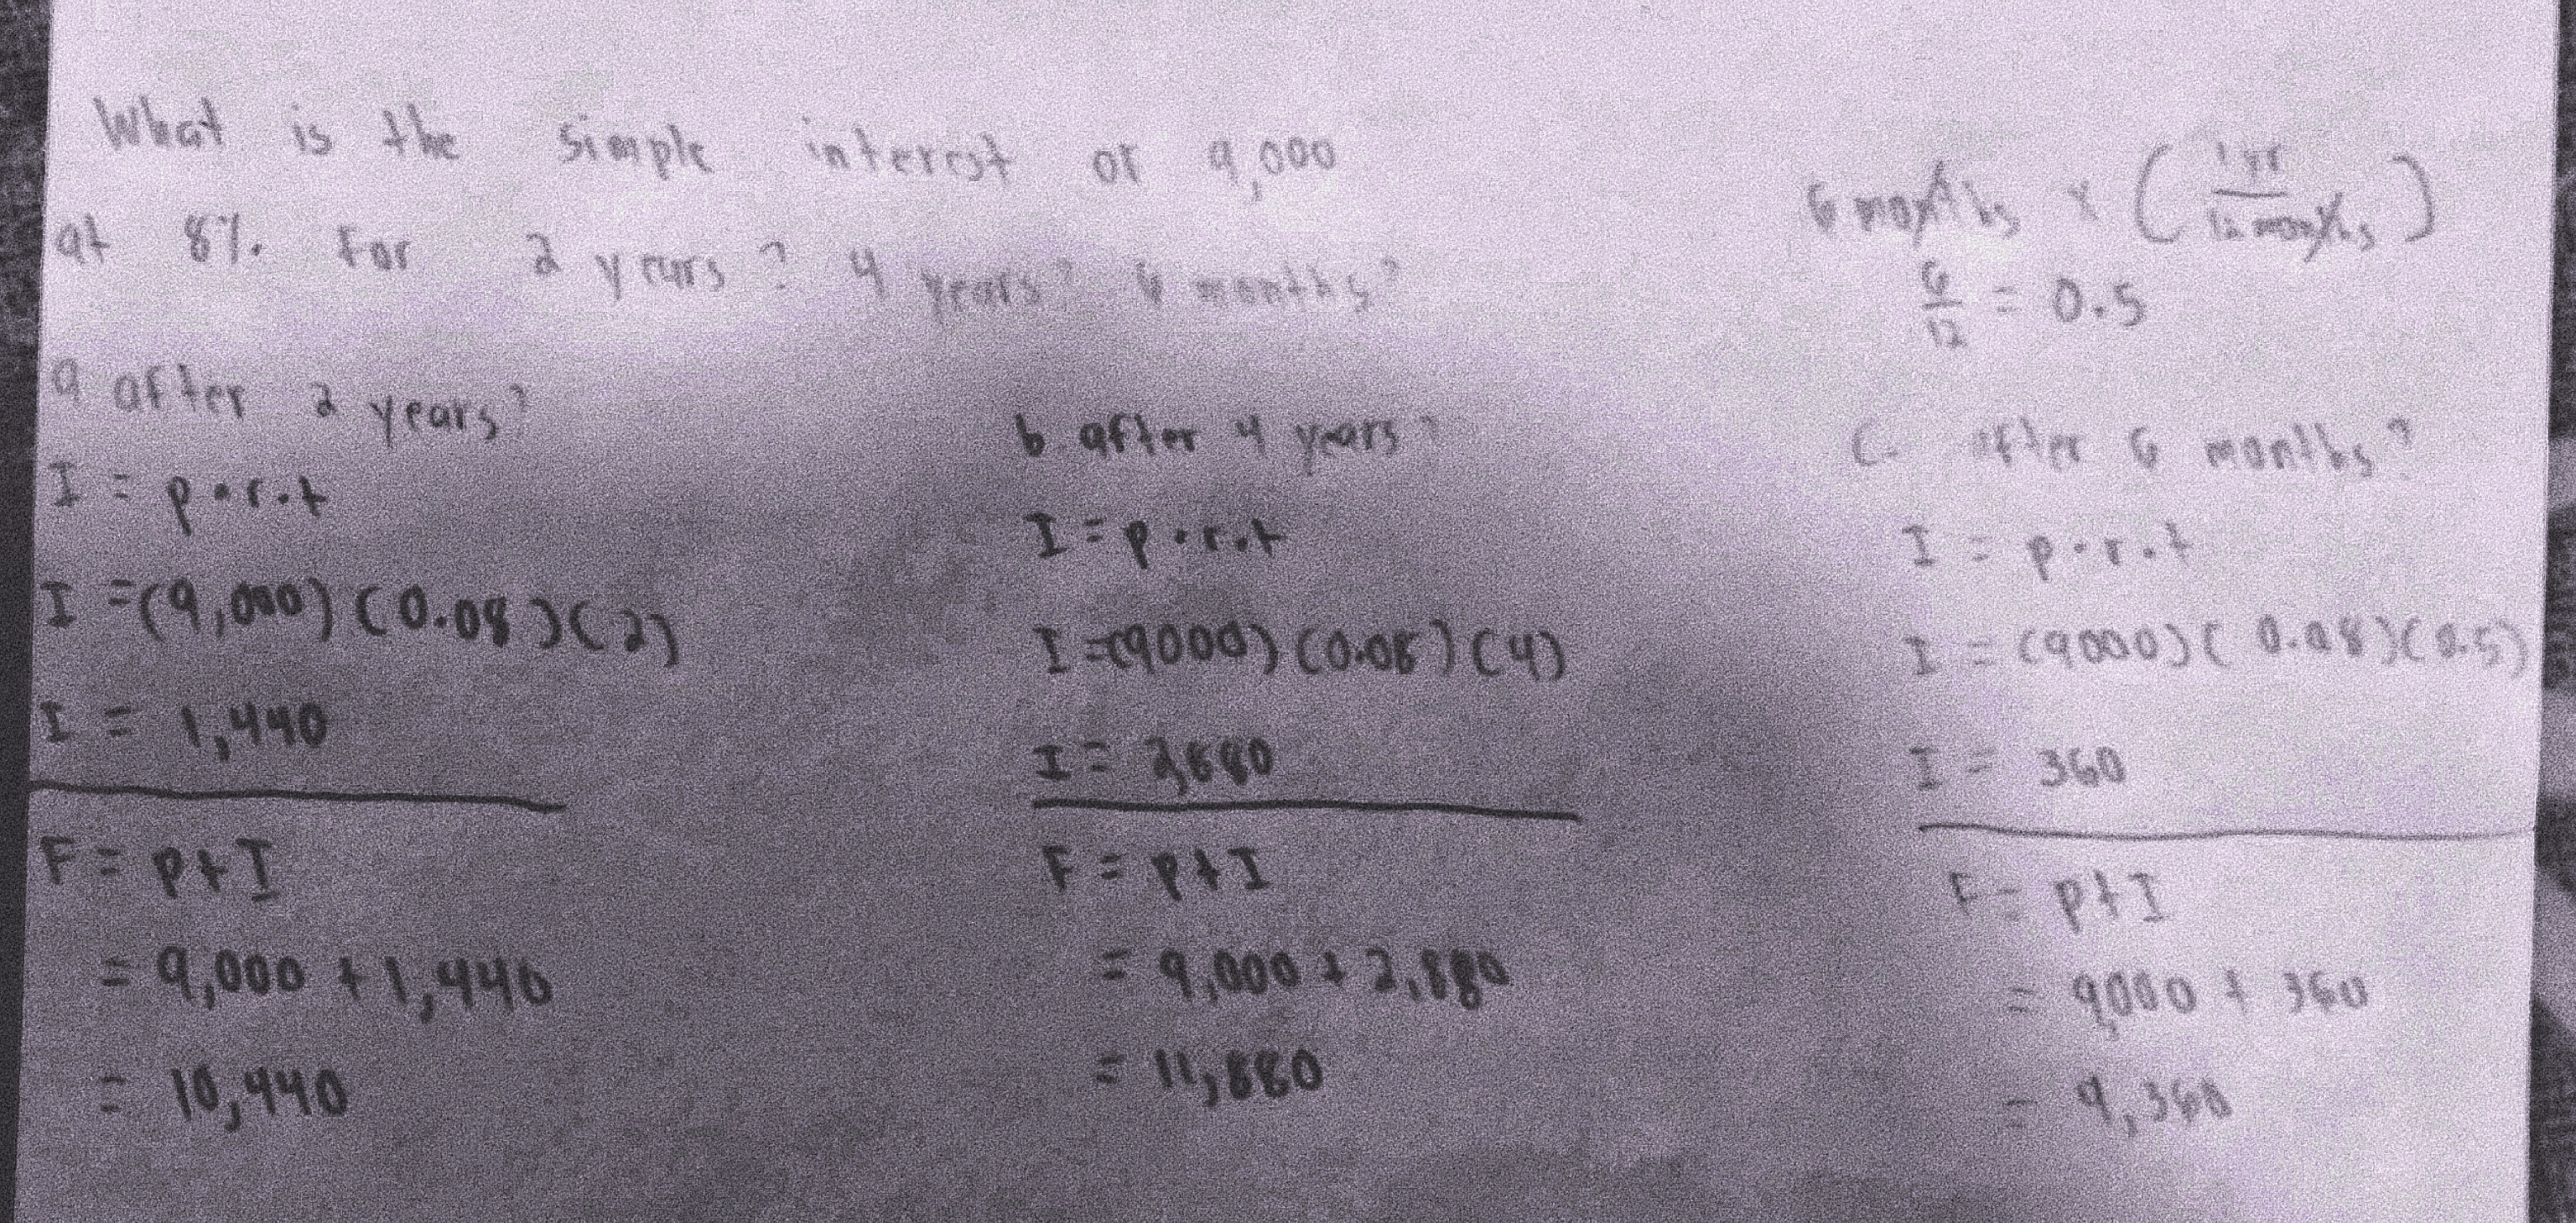 What is the simple interest of 9,000
at 8%. for 2 years? 4 years? 6 months?
6 months x (1 yr / 12 months)
6/12 = 0.5
a after 2 years?
I = p•r.t
I =(9,000)(0.08)(2)
I = 1,440
F = p+I
= 9,000 + 1,440
= 10,440
b. after 4 years?
I = p.r.t
I =(9000)(0.08)(4)
I = 2,880
F = p+I
= 9,000 + 2,880
= 11,880
C. after 6 months?
I = p.r.t
I = (9000)(0.08)(0.5)
I = 360
F = p+I
= 9,000 + 360
= 9,360